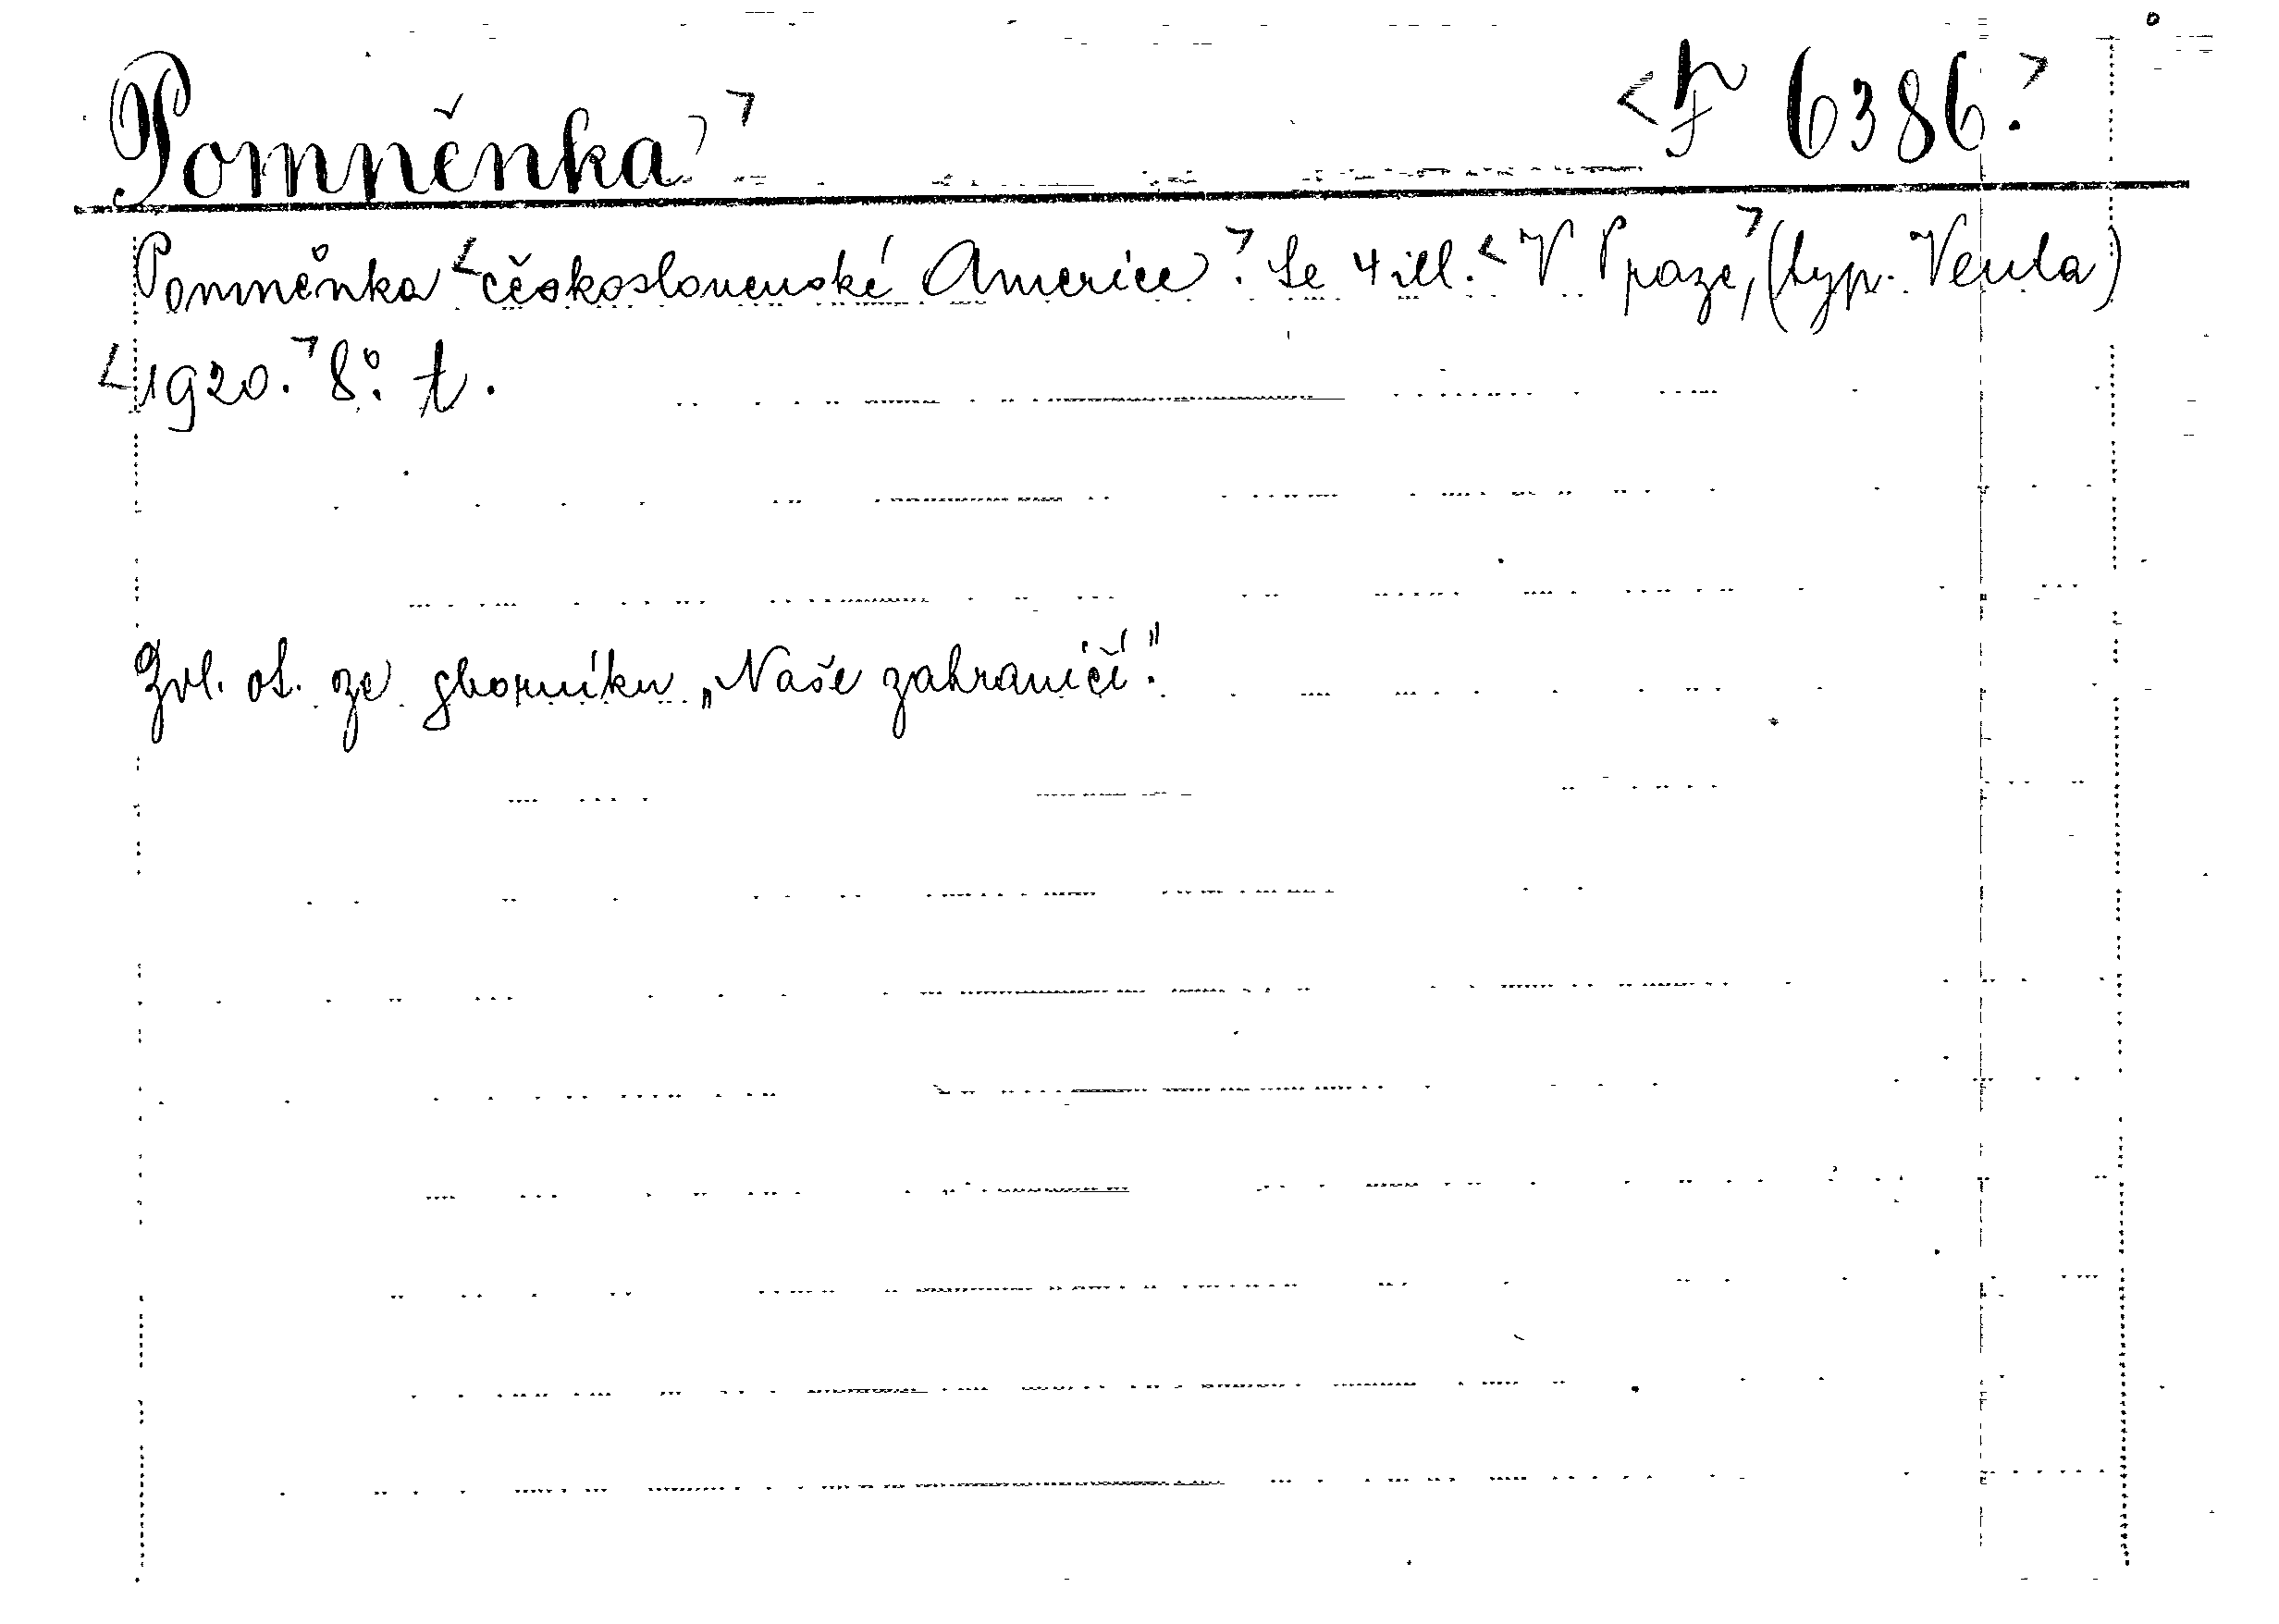 Pomněnka <F 6386.>
Pomněnka <československé Americe>. Se 4 ill. <V Praze,> (typ. Venta)
<1920.> 8°. t.
Zvl. ot. ze sborníku „Naše zahraničí".